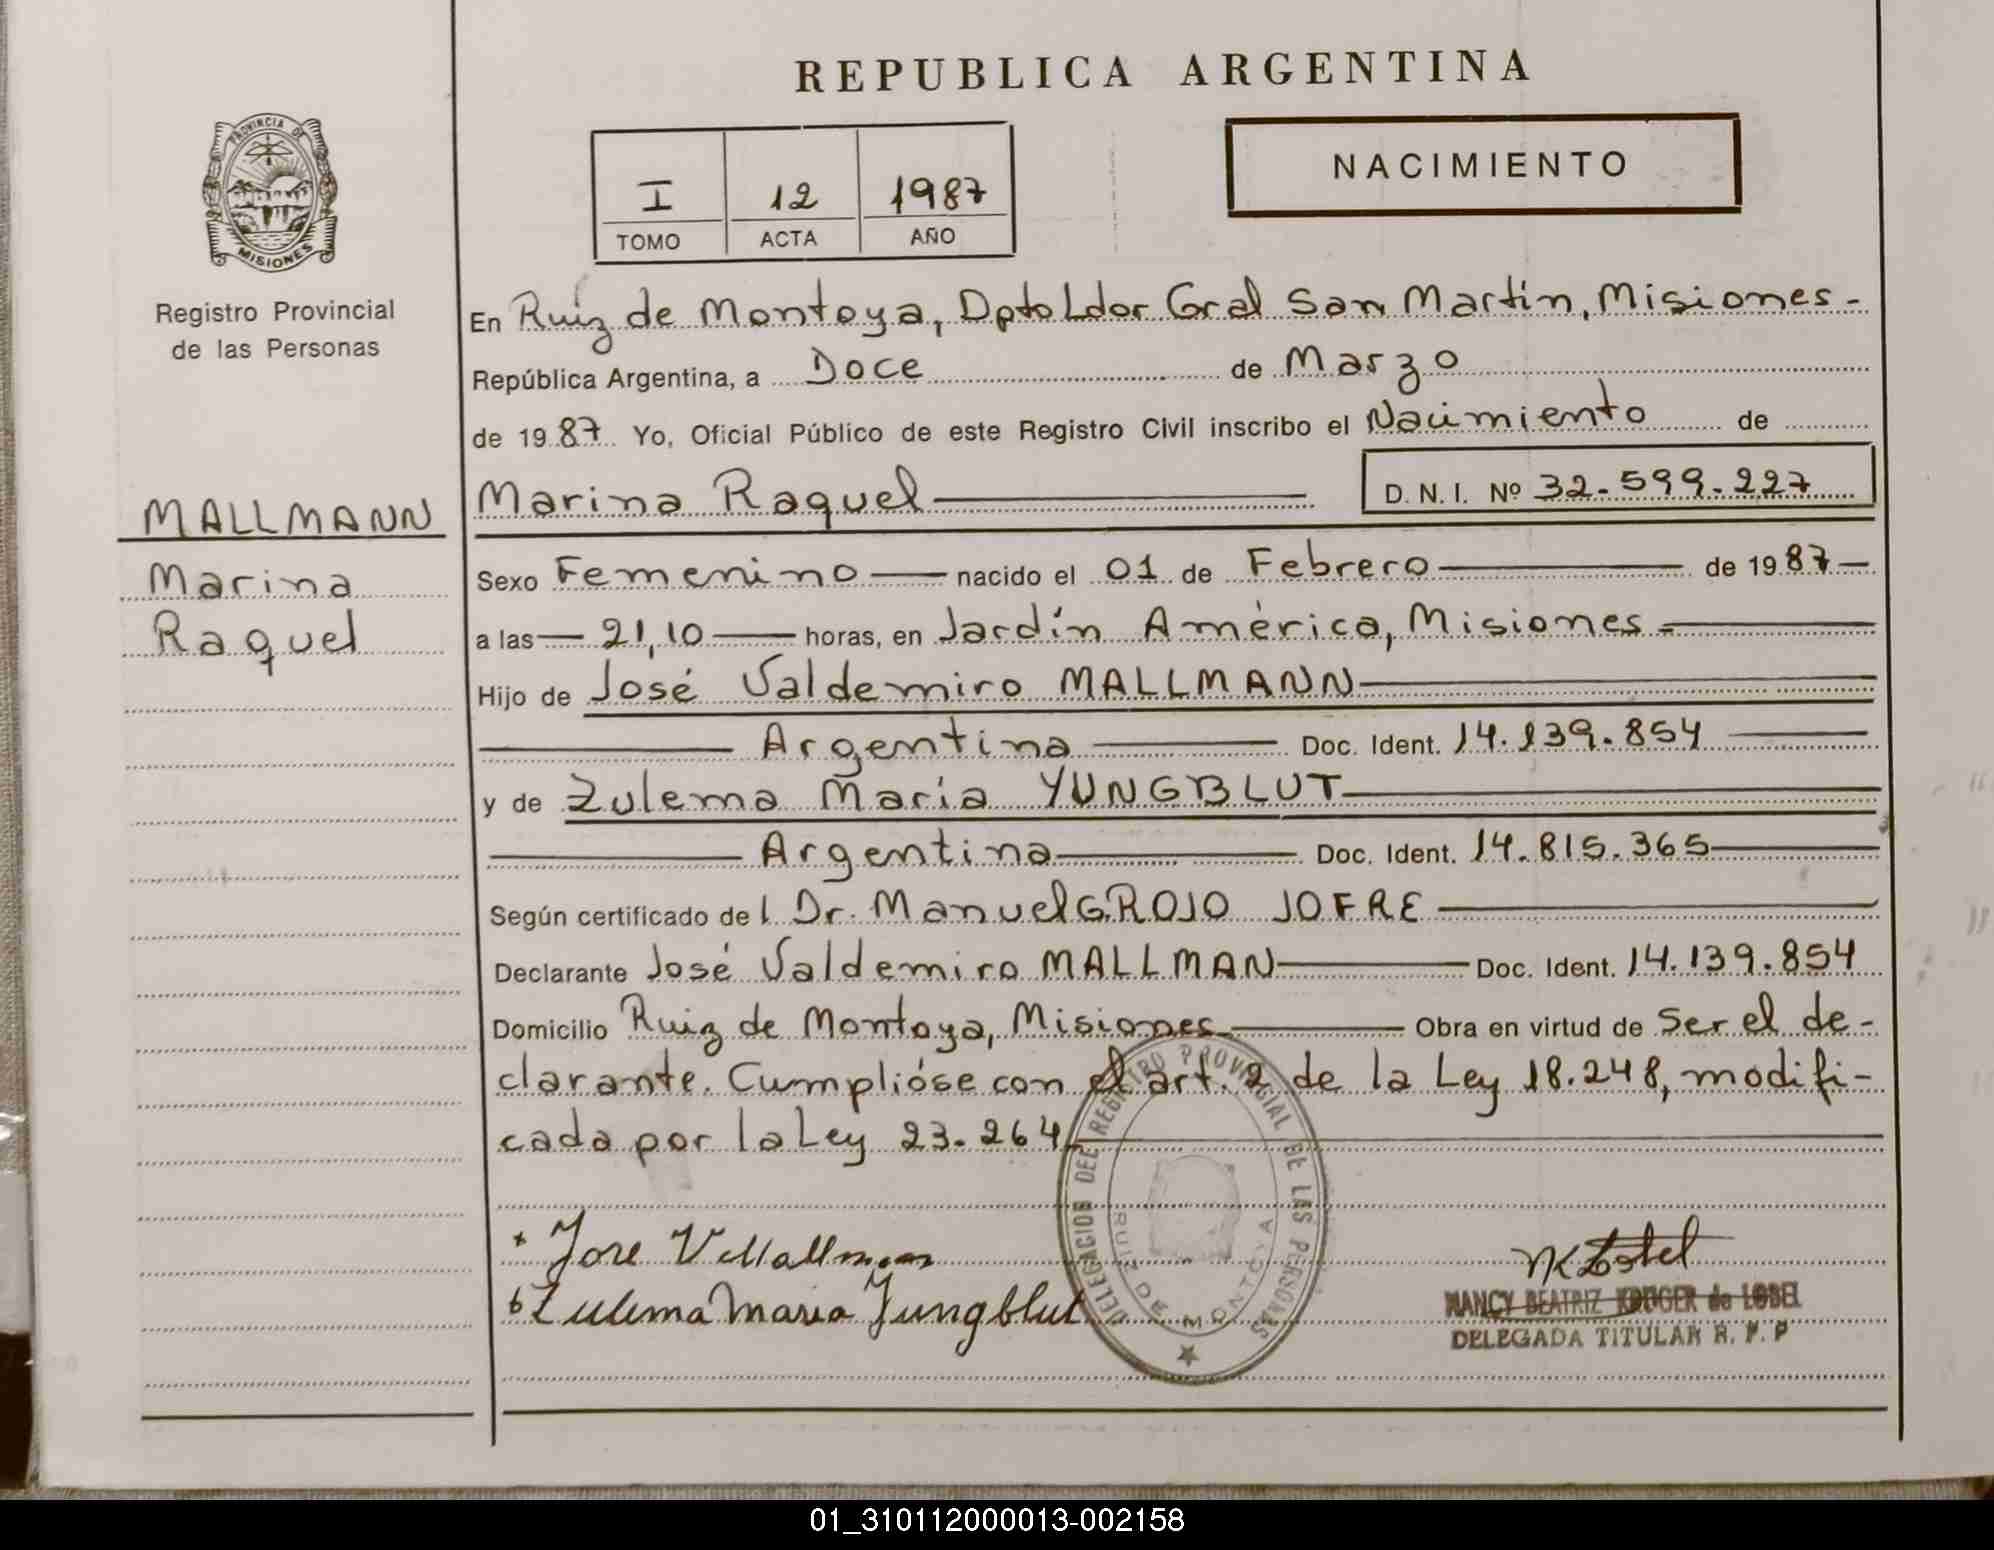 REPUBLICA ARGENTINA
PROVINCIA DE
MISIONES
Registro Provincial
de las Personas
I 12 1987
TOMO ACTA AÑO
NACIMIENTO
En Ruíz de Montoya, Dpto Ldor Gral San Martín, Misiones-
República Argentina, a Doce de Marzo
de 1987 Yo, Oficial Público de este Registro Civil inscribo el Nacimiento de
MALLMANN
Marina
Raquel
Marina Raquel D. N. I. Nº 32-599-227
Sexo Femenino nacido el 01 de Febrero de 1987
a las 21,10 horas, en Jardín América, Misiones
Hijo de José Valdemiro MALLMANN
Argentina Doc. Ident. 14.139.854
y de Zulema María YUNGBLUT
Argentina Doc. Ident. 14.815.365
Según certificado del Dr. Manuel G. ROJO JOFRE
Declarante José Valdemiro MALLMAN Doc. Ident. 14.139.854
Domicilio Ruiz de Montoya, Misiones Obra en virtud de Ser el de-
clarante. Cumplióse con el art. 2 de la Ley 18.248, modifi-
cada por la Ley 23.264
DELEGACION DEL REGISTRO PROVINCIAL DE LAS PERSONAS
RUIZ DE MONTOYA
Jose V Mallmann
Zulema Maria Jungblut
NK Lobel
NANCY BEATRIZ KRUGER de LOBEL
DELEGADA TITULAR R. P. P
01_310112000013-002158